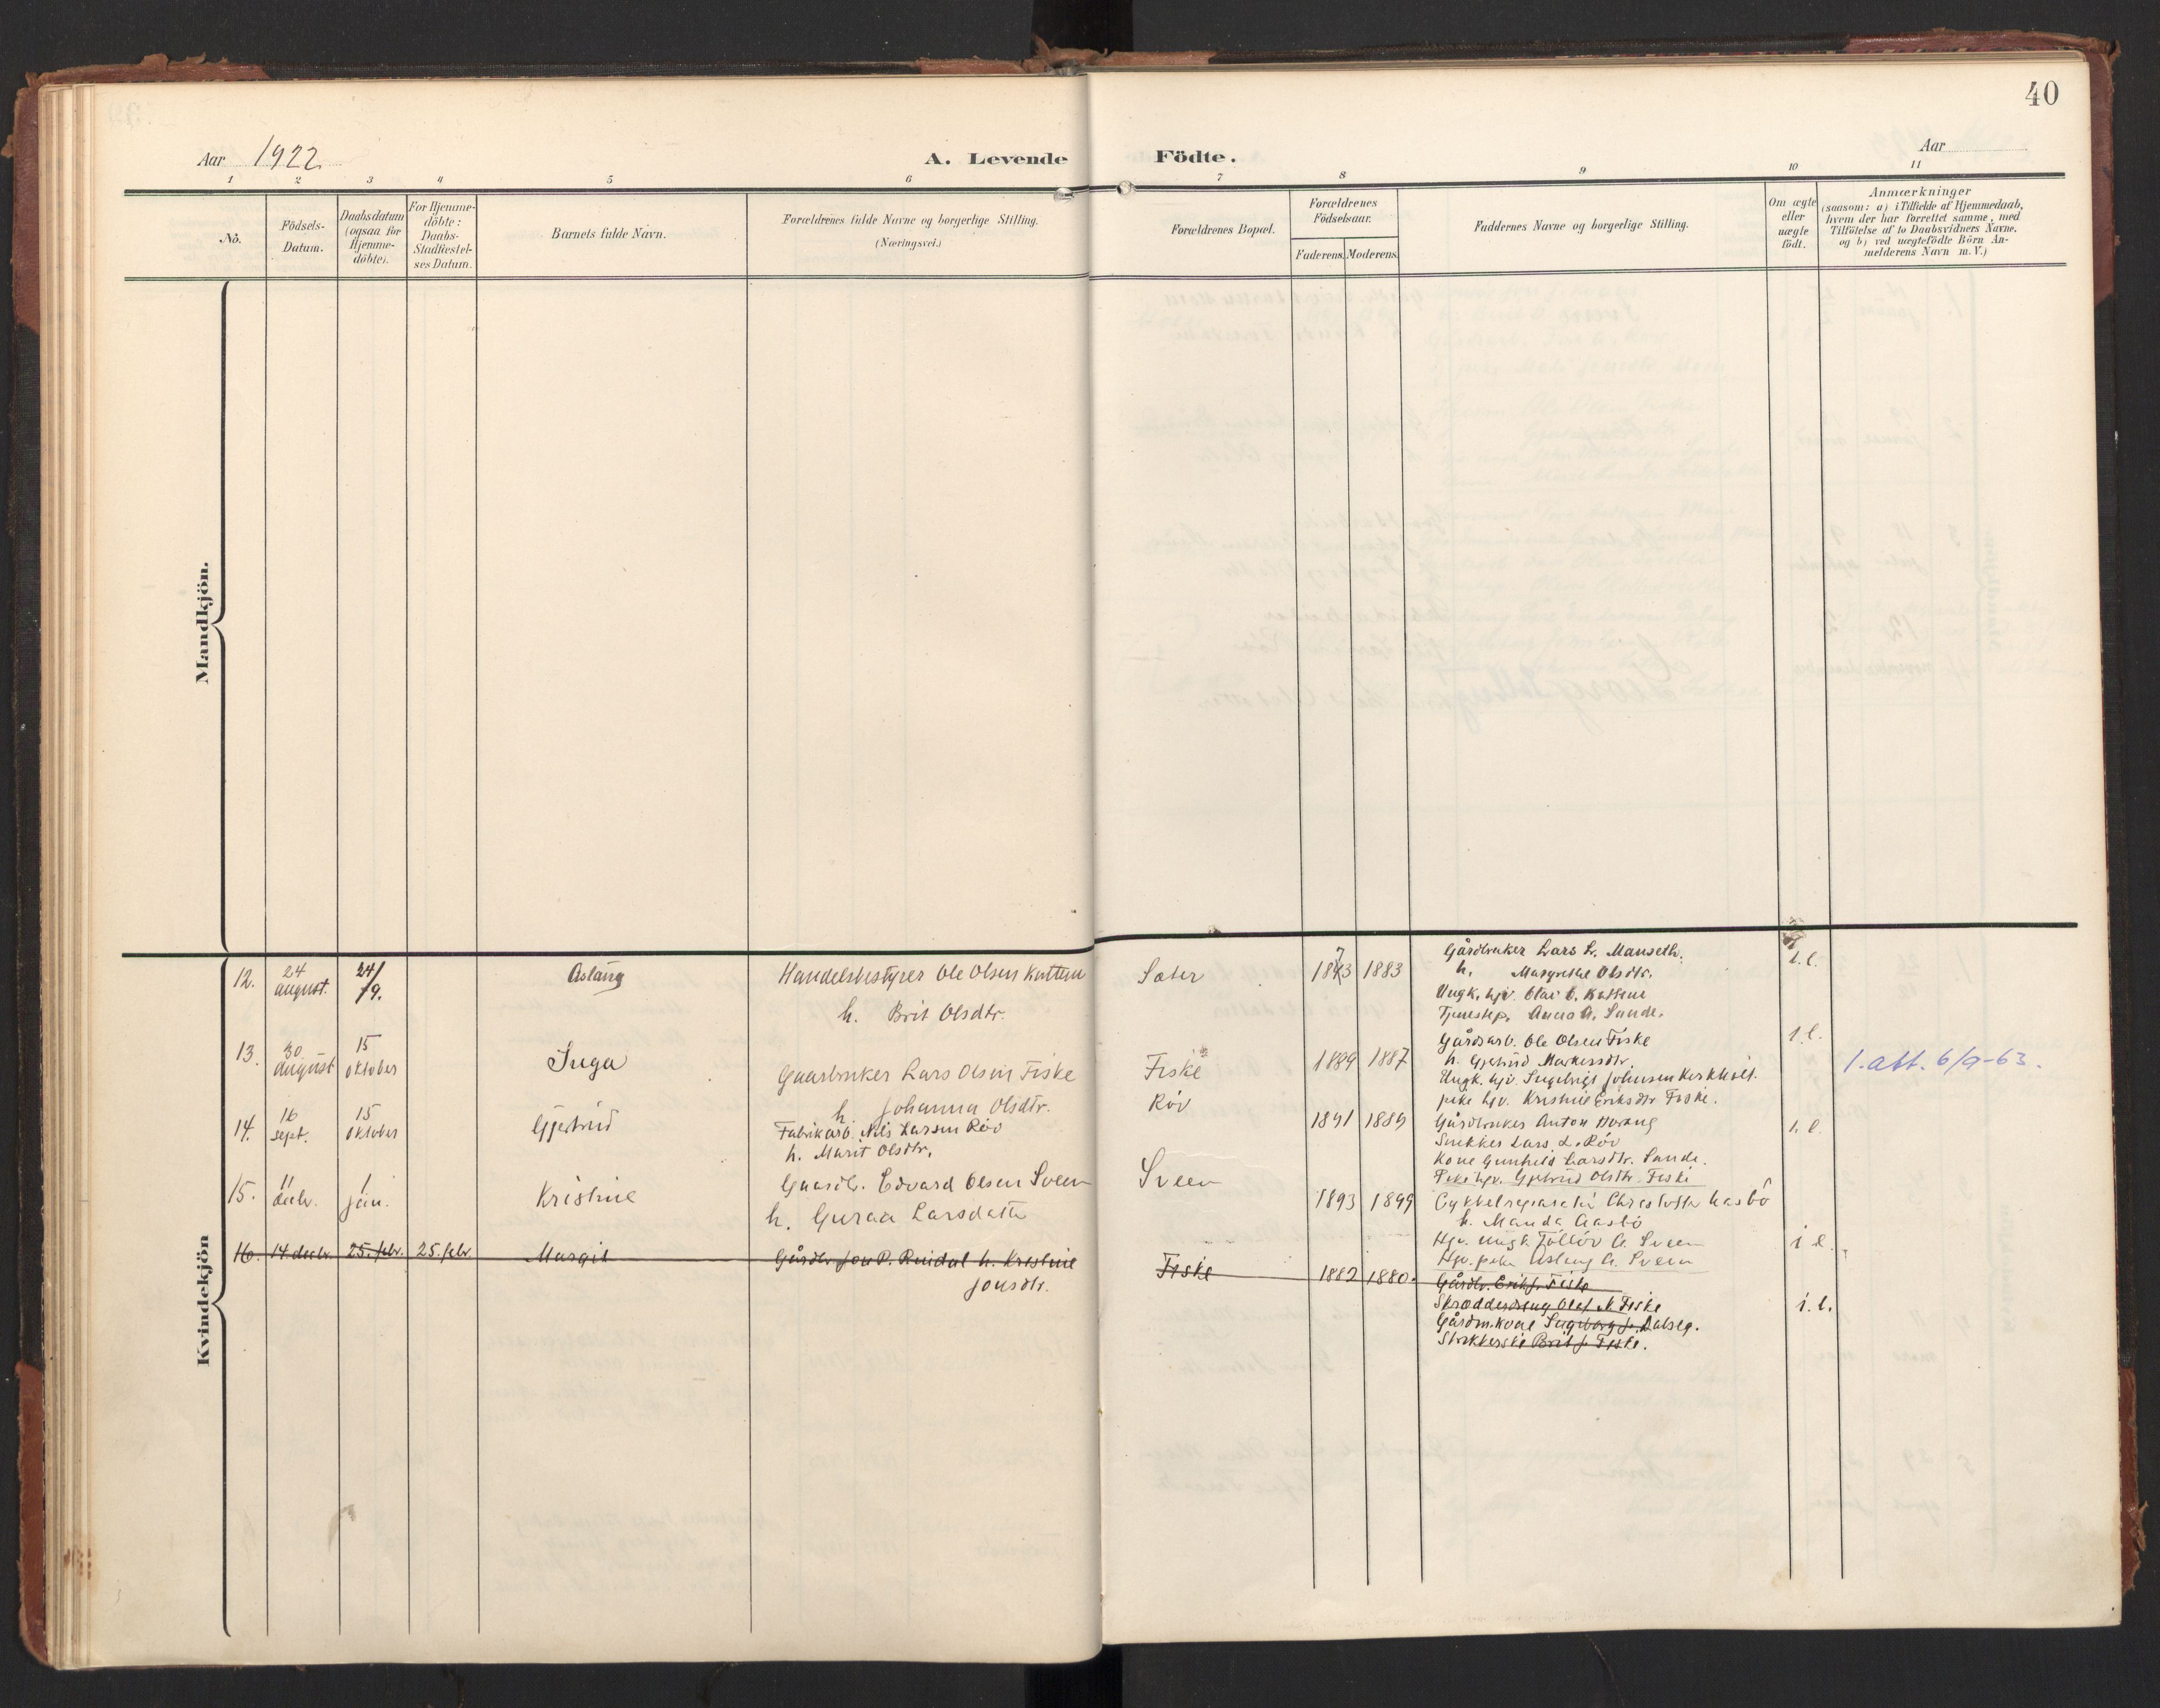 40
Aar 1922
A. Levende Födte.
Aar
1 2 3 4 5 6 7 8 9 10 11
No.
Födsels-
Datum.
Daabsdatum
(ogsaa for
Hjemme-
döbte).
For Hjemme-
döbte:
Daabs-
Stadfæstel-
ses Datum.
Barnets fulde Navn.
Forældrenes fulde Navne og borgerlige Stilling.
(Næringsvei.)
Forældrenes Bopæl.
Forældrenes
Födselsaar.
Faderens. Moderens.
Faddernes Navne og borgerlige Stilling.
Om ægte
eller
uægte
födt.
Anmærkninger
(saasom: a) i Tilfælde af Hjemmedaab,
hvem der har forrettet samme, med
Tilföielse af to Daabsvidners Navne,
og b) ved uægtefödte Börn An-
melderens Navn m. V.)
Mandkjön.
Kvindekjön
12. 24 august. 24/9. Aslaug
Handelsbestyrer Ole Olsen
h. Brit Olsdtr.
Sæter 1873 1883
Gårdbruker Lars L. Manseth.
h. Margrethe Olsdtr.
Ungk. hjv.
Tjenestep. Anna A. Sande.
i.e.
13. 30 august 15 oktober Inga
Gaardbruker Lars Olsen Fiske
h. Johanna Olsdtr.
Fiske 1889 1887
Gårdsarb. Ole Olsen Fiske
h. Gjertrud
Ungk. hjv. Ingebrigt Johnsen Kirkholt.
pike hjv. Kristine Eriksdtr Fiske.
i.e.
1. att. 6/9-63.
14. 16 sept. 15 oktober Gjertrud
Fabrikarb. Nils Larsen Röv
h. Marit Olsdtr.
Röv 1891 1889
Gårdbruker Anton
Snekker Lars L. Röv
Kone Gunhild Larsdtr. Sande.
Pike hjv. Gjertrud Olsdtr. Fiske
i.e.
15. 11 decbr. 1 jan. Kristine
Gaardbr. Edvard Olsen Sveen
h. Guraa Larsdatter
Sveen 1893 1899
Cykkelreparatör
h. Manda Aasbö
Hjv. ungk. Tollöv O. Sveen
Hjv. pike Aslaug O. Sveen
i e.
16. 14. decbr. 25. febr. 25. febr. Margit
Gårdbr. Jon P. Rindal h. Kristine
Jonsdtr.
Fiske 1882 1880.
Gårdbr. Erik J. Fiske
Skrædderdreng Olaf N. Fiske
Gårdm.kone Ingeborg J. Dalseg.
Strikkerske Brit J. Fiske.
i.e.